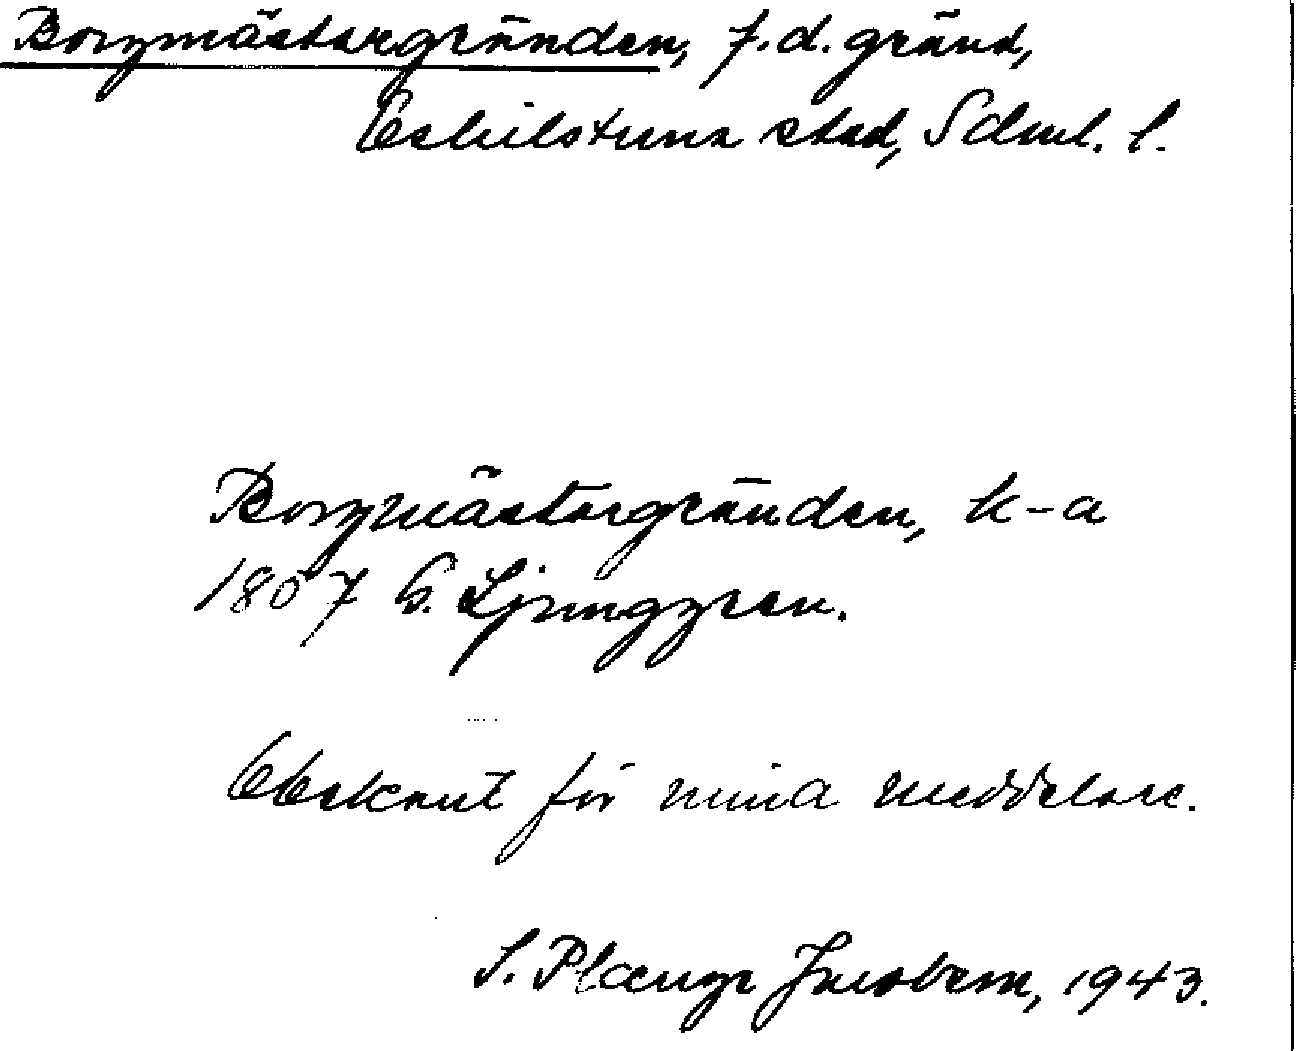 Borgmästargränden, f.d. gränd,
Eskilstuna stad, Södml. l.
Borgmästargränden, k-a
1807 G. Ljunggren.
Obekant för mina meddelare.
S. Plænge Jacobson, 1943.